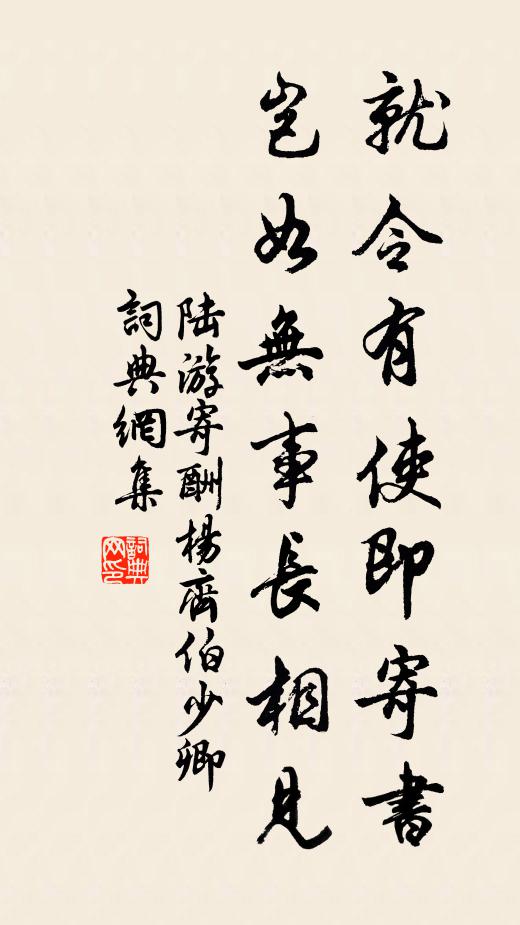 就令有使即寄書
豈如無事長相見
陆游寄酬楊齊伯少卿
詞典網集
詞典网印